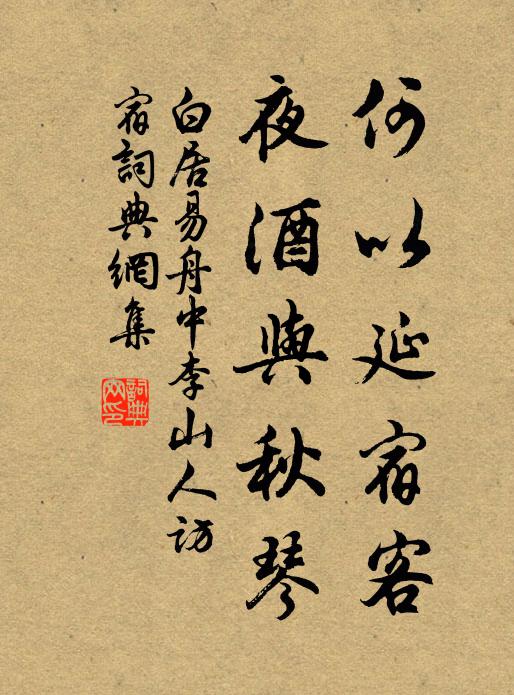 何以延宿客
夜酒與秋琴
白居易舟中李山人訪
宿詞典網集
詞典
網印